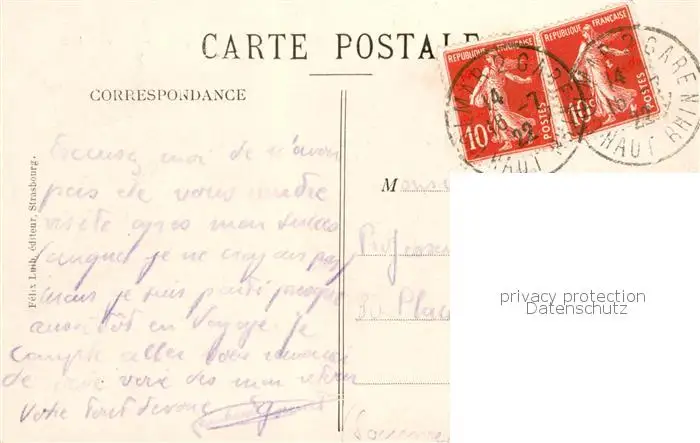 CARTE POSTALE
REPUBLIQUE FRANÇAISE
REPUBLIQUE FRANÇAISE
10 c POSTES
10 c POSTES
MAR 2 GARE
14
16 -7
22
HAUT RHIN
CORRESPONDANCE
Félix Luib, éditeur, Strasbourg.
Excusez moi de n'avoir
pas été vous rendre
visite après mon succès
auquel je ne croyais pas
mais je suis parti presque
aussitôt en voyage. Je
compte aller vous
de vive voix dès mon retour
Votre tout dévoué
M
Professeur
30 Place
privacy protection
Datenschutz